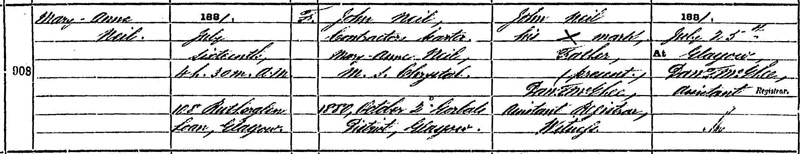 908
Mary-Anne
Neil.
1881,
July
Sixteenth,
4 h. 30 m. A.M.
108 Rutherglen
Loan, Glasgow
F.
John Neil,
Contractors Carter
Mary-Anne Neil,
M. S. Chrystal.
1880, October 2d Gorbals
District, Glasgow.
John Neil
his X mark,
Father,
(present.)
Danl McGhee,
Assistant Registrar,
Witness.
1881,
July 25th
At Glasgow
Danl McGhee,
Assistant Registrar.